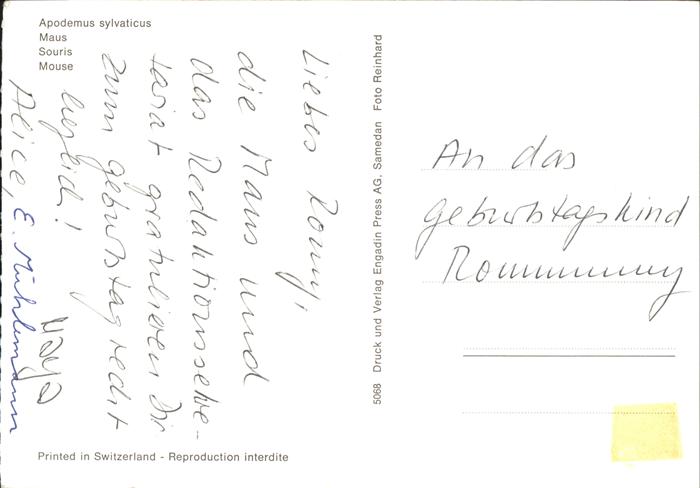 Apodemus sylvaticus
Maus
Souris
Mouse
Liebes Romy,
die Maus und
das Redaktionssekre-
tariat gratulieren Dir
zum Geburtstag recht
herzlich!
Alice, E. Mühlemann
Maya
Printed in Switzerland - Reproduction interdite
5068 Druck und Verlag Engadin Press AG, Samedan Foto Reinhard
An das
Geburtstagskind
Rommmmmy